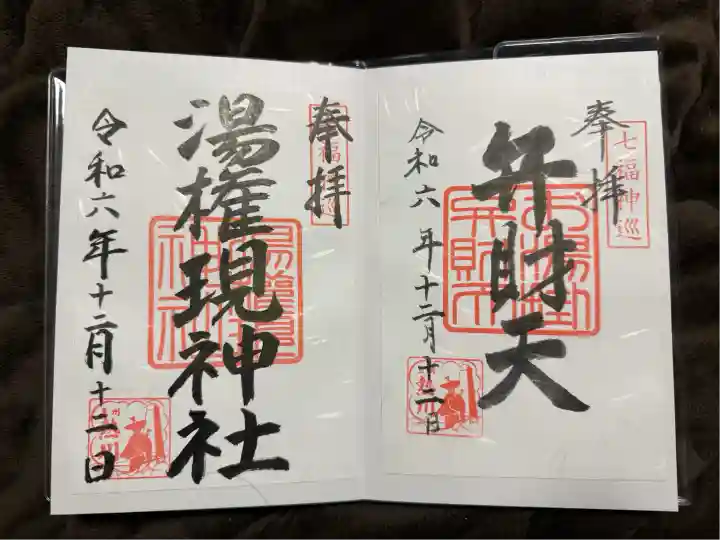 七福神巡
奉拝
弁財天
令和六年十二月十二日
奉拝
湯権現神社
令和六年十二月十二日
熱川